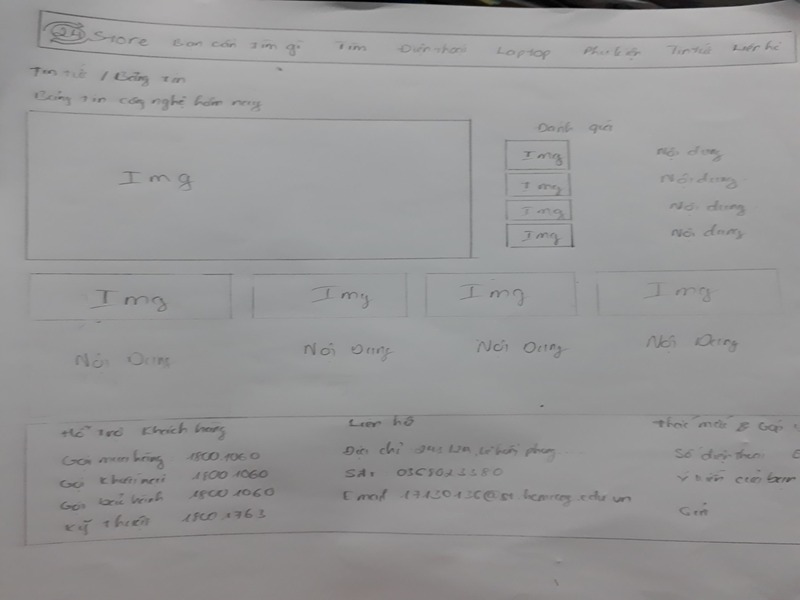 24 Store Bạn cần tìm gì Tìm Điện thoại Laptop Phụ kiện Tin tức Liên hệ
Tin tức / Bảng tin
Bảng tin công nghệ hôm nay
Img
Đánh giá
Img Nội dung
Img Nội dung
Img Nội dung
Img Nội dung
Img Img Img Img
Nội Dung Nội Dung Nội Dung Nội Dung
Hỗ trợ khách hàng
Gọi mua hàng 1800 1060
Gọi khiếu nại 1800 1060
Gọi bảo hành 1800 1060
Kỹ thuật 1800 1763
Liên hệ
Địa chỉ
Email
Thắc mắc & Góp
Số điện thoại
Ý kiến của bạn
Gửi